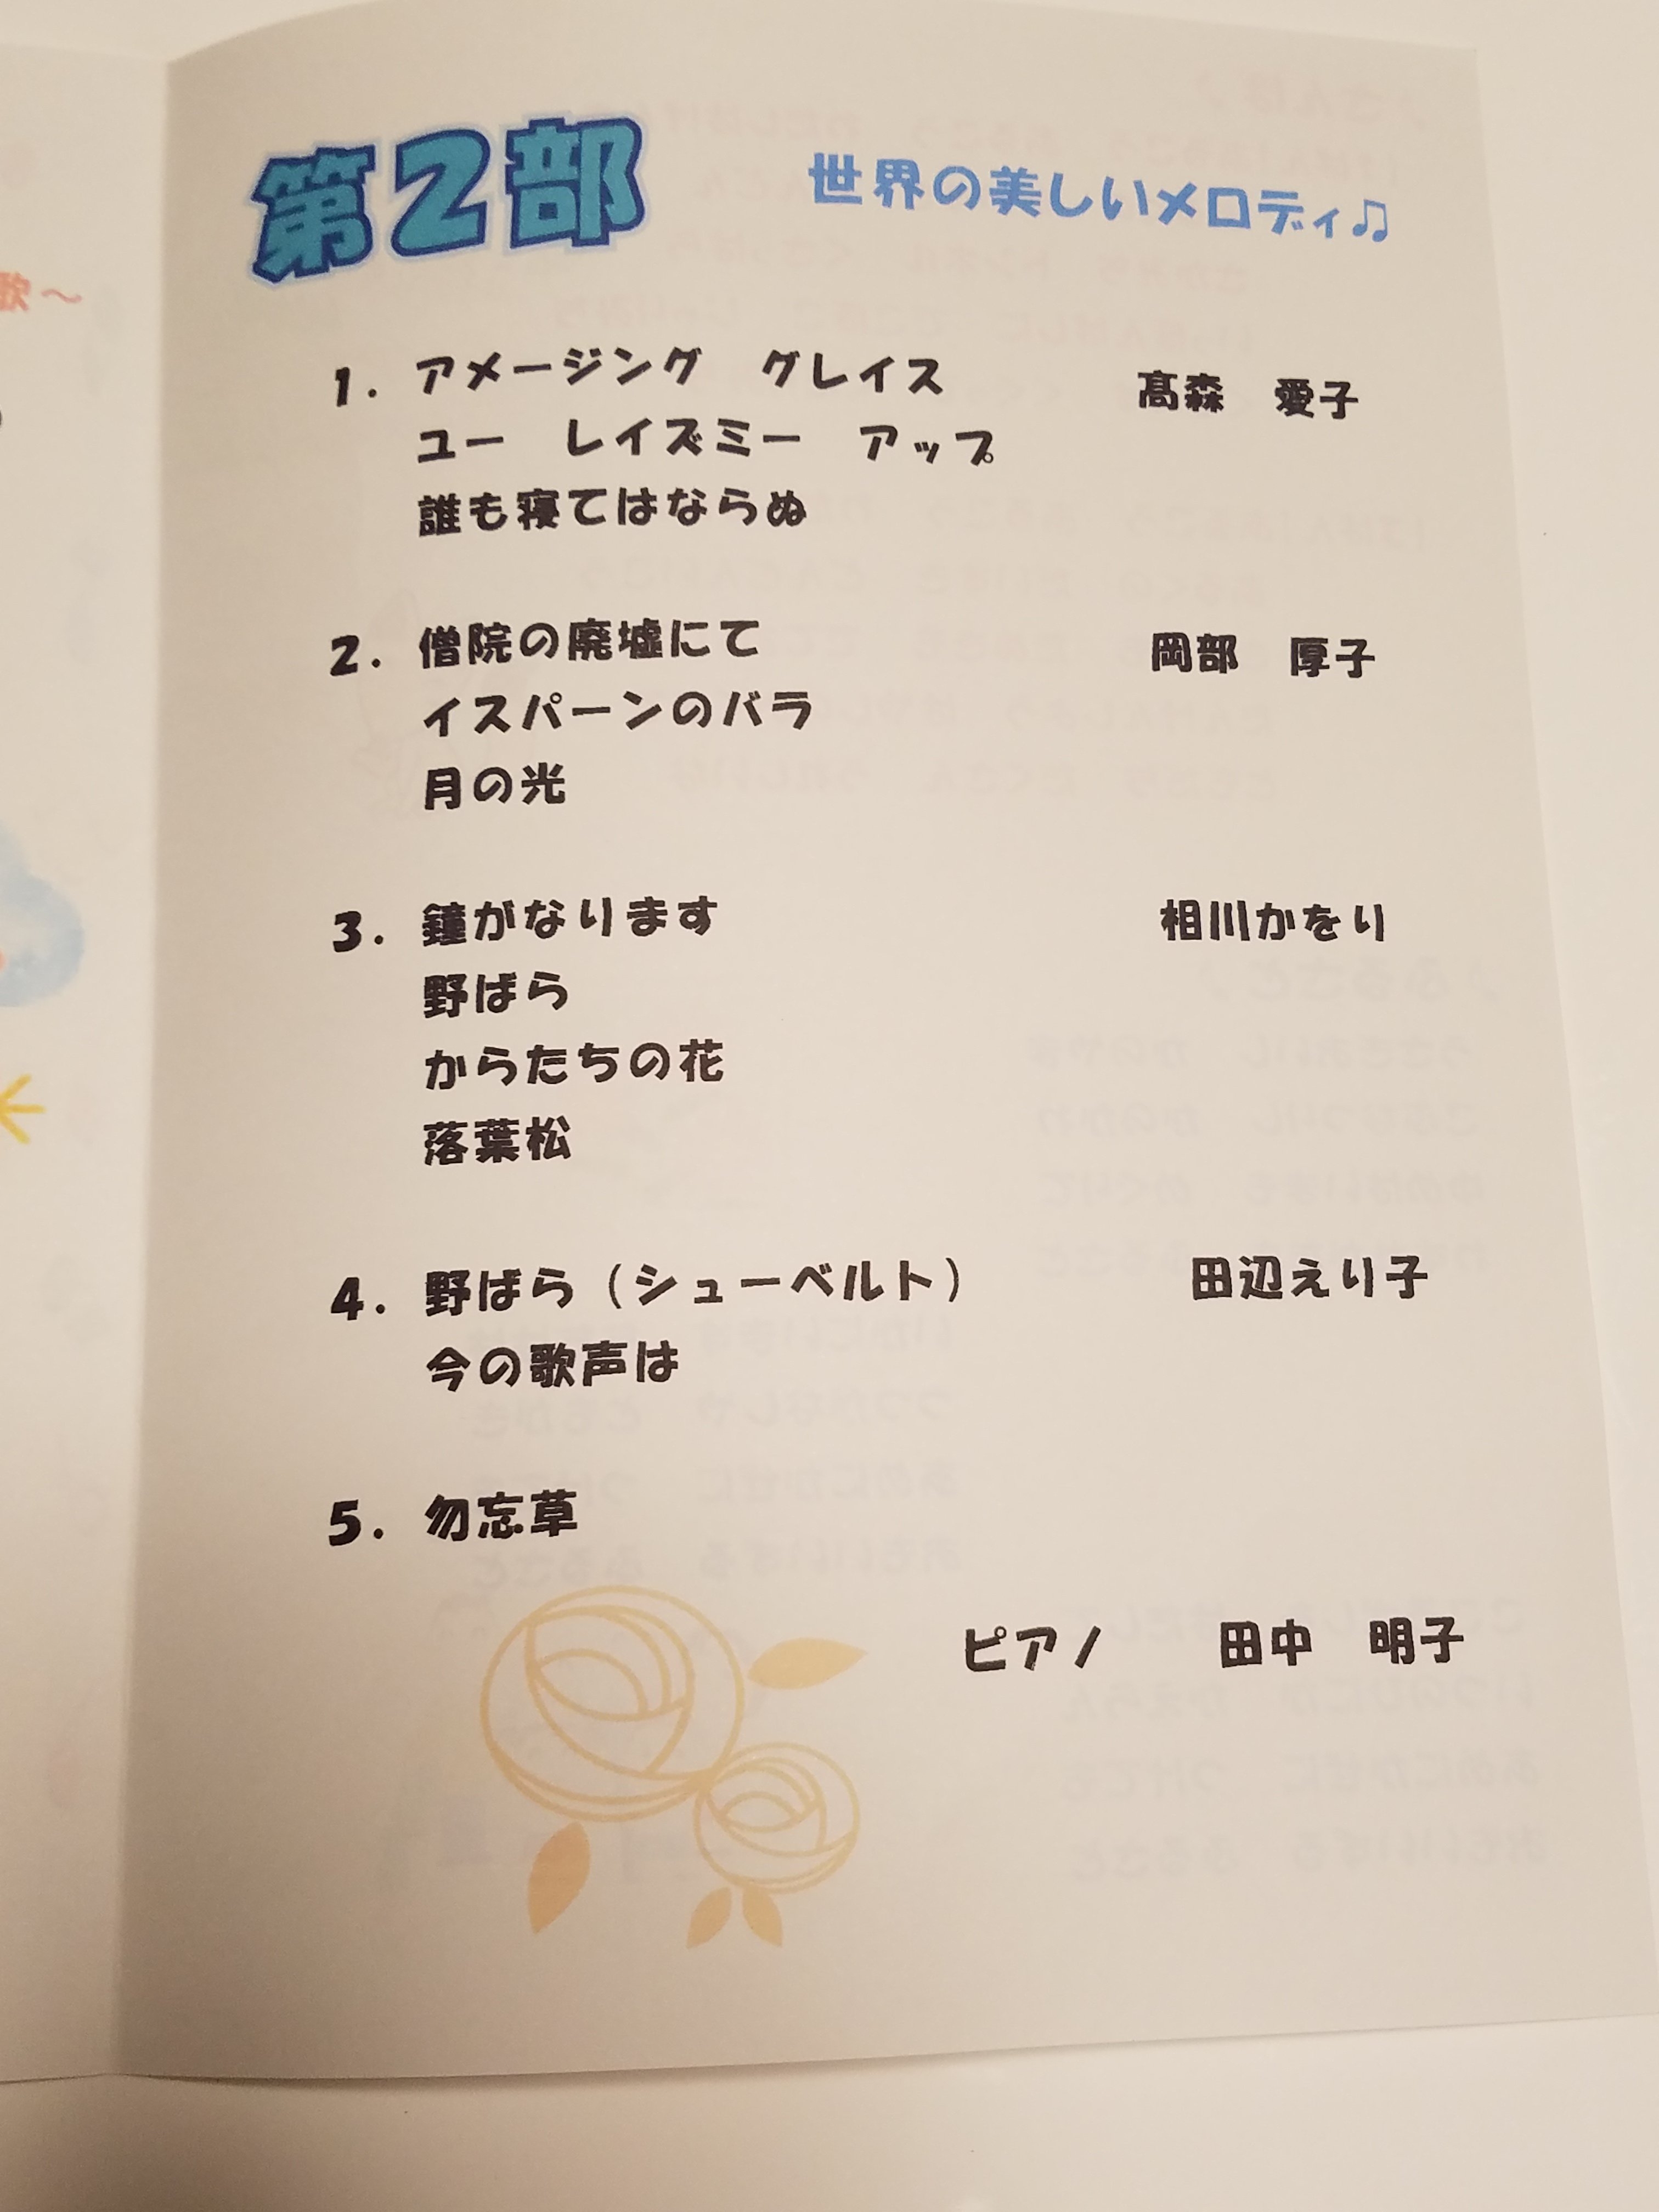 歌～
第2部 世界の美しいメロディ♫
1. アメージング グレイス 髙森 愛子
ユー レイズミー アップ
誰も寝てはならぬ
2. 僧院の廃墟にて 岡部 厚子
イスパーンのバラ
月の光
3. 鐘がなります 相川かをり
野ばら
からたちの花
落葉松
4. 野ばら（シューベルト） 田辺えり子
今の歌声は
5. 勿忘草
ピアノ 田中 明子